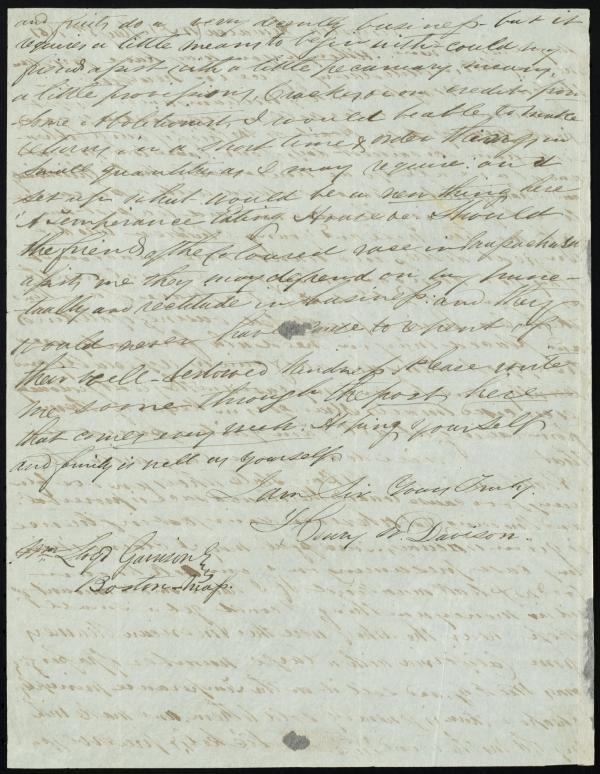 and fruits do a very decently business but it
requires a little means to begin with could my
friends assist with a little pecuniary means,
a little provisions, Crackers &c on credit from
Some Abolitionist, I would be able to make
returns in a short time & order things in
Small quantities as I may require on it
set up what would be a new thing here
A Temperance Eating House &c. Should
the friends of the Coloured race in
assist me they may depend on my punc-
tuality and rectitude in business. and they
would never have cause to repent of
their well-bestowed kindness. Please write
me soone through the post here
that comes every week. Hoping yourself
and family is well as yourself
I am Sir Yours Truly.
Henry Davison.
Wm Loyd Garrison
Boston Mass.